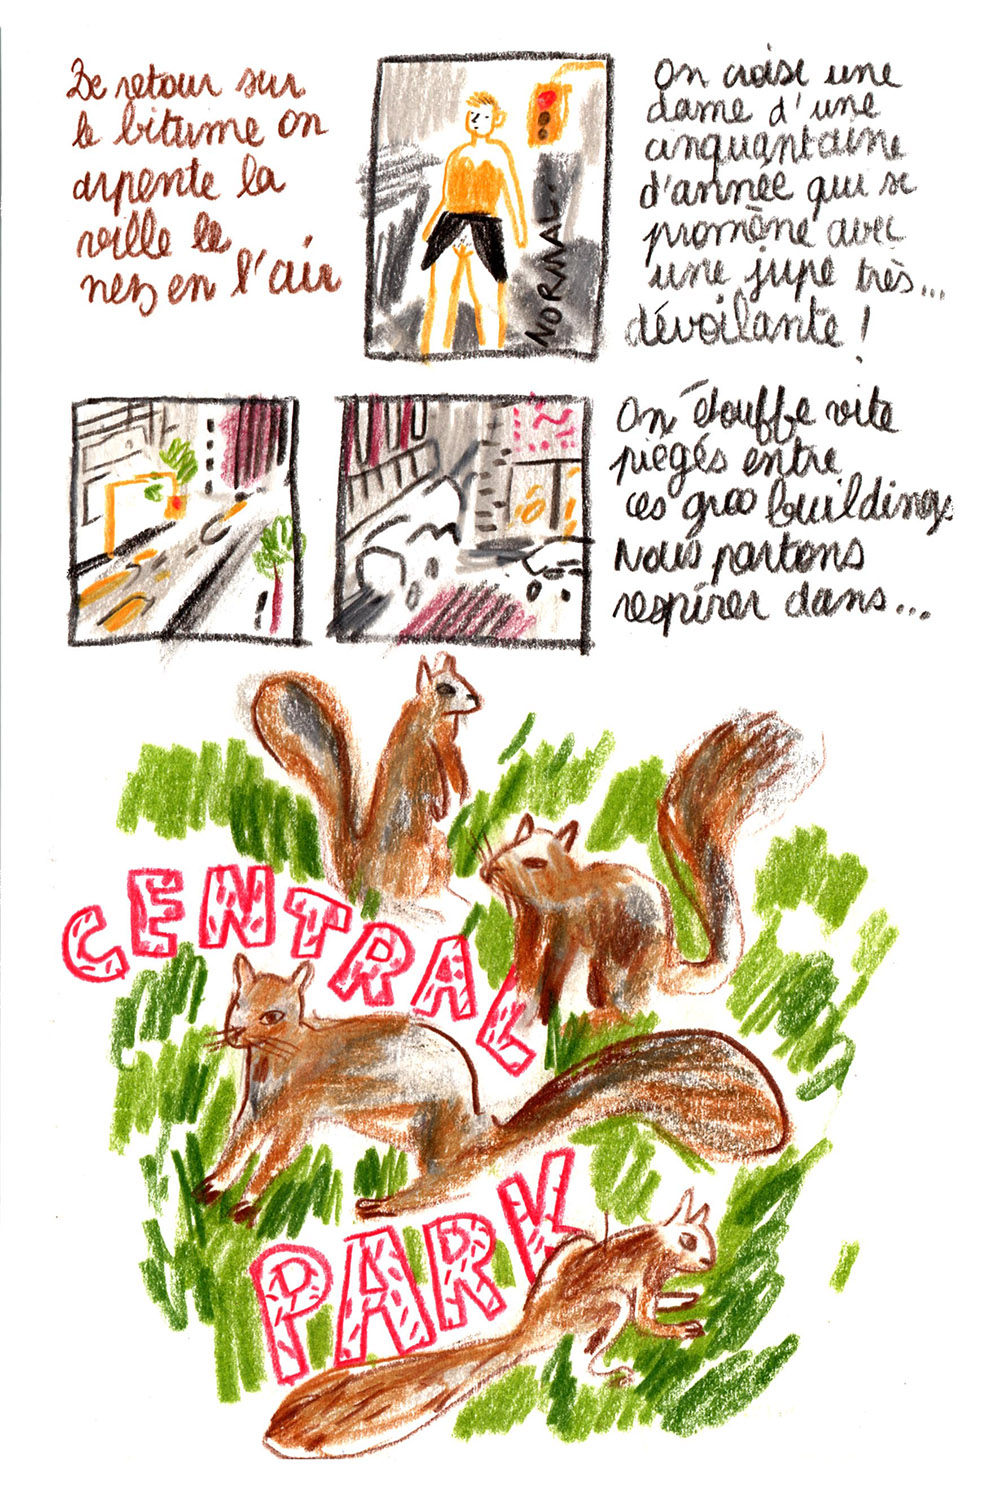 De retour sur
le bitume on
arpente la
ville le
nez en l'air
NORMAL.
On croise une
dame d'une
cinquantaine
d'année qui se
promène avec
une jupe très...
dévoilante !
On étouffe vite
piégés entre
ces gros buildings
Nous partons
respirer dans...
CENTRAL
PARK